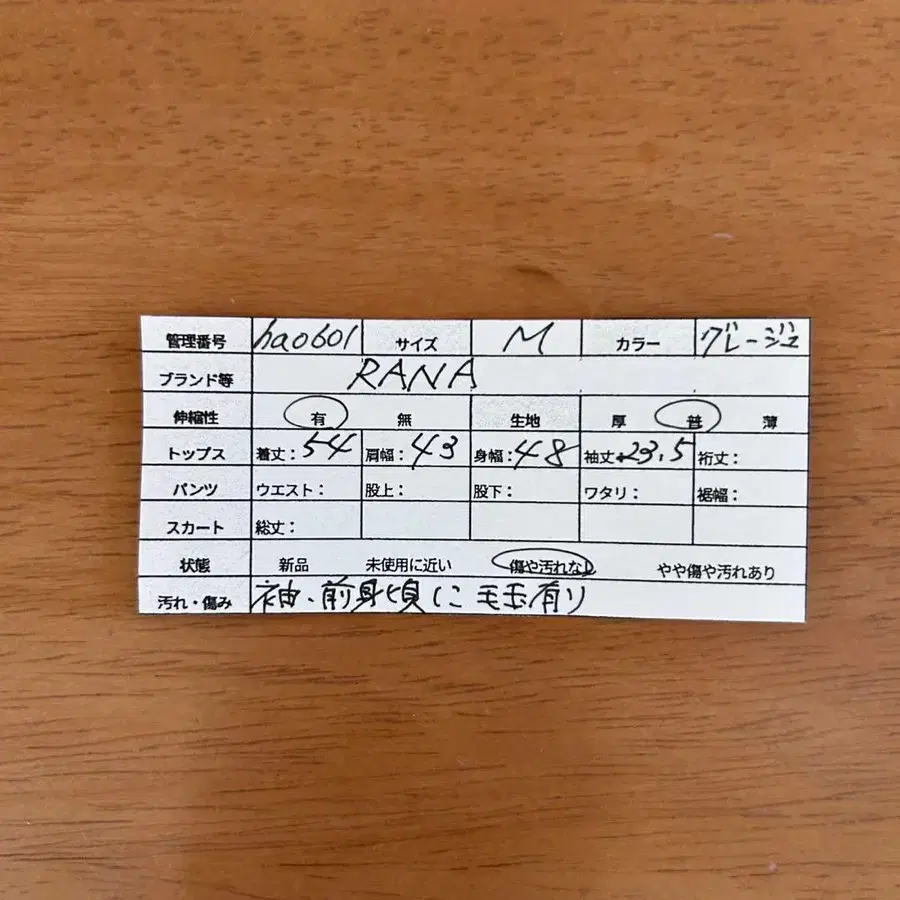 管理番号 ha0601 サイズ M カラー グレージュ
ブランド等 RANA
伸縮性 有 無 生地 厚 普 薄
トップス 着丈：54 肩幅：43 身幅：48 袖丈：23.5 裄丈：
パンツ ウエスト： 股上： 股下： ワタリ： 裾幅：
スカート 総丈：
状態 新品 未使用に近い 傷や汚れなし やや傷や汚れあり
汚れ・傷み 袖、前身頃に毛玉有り